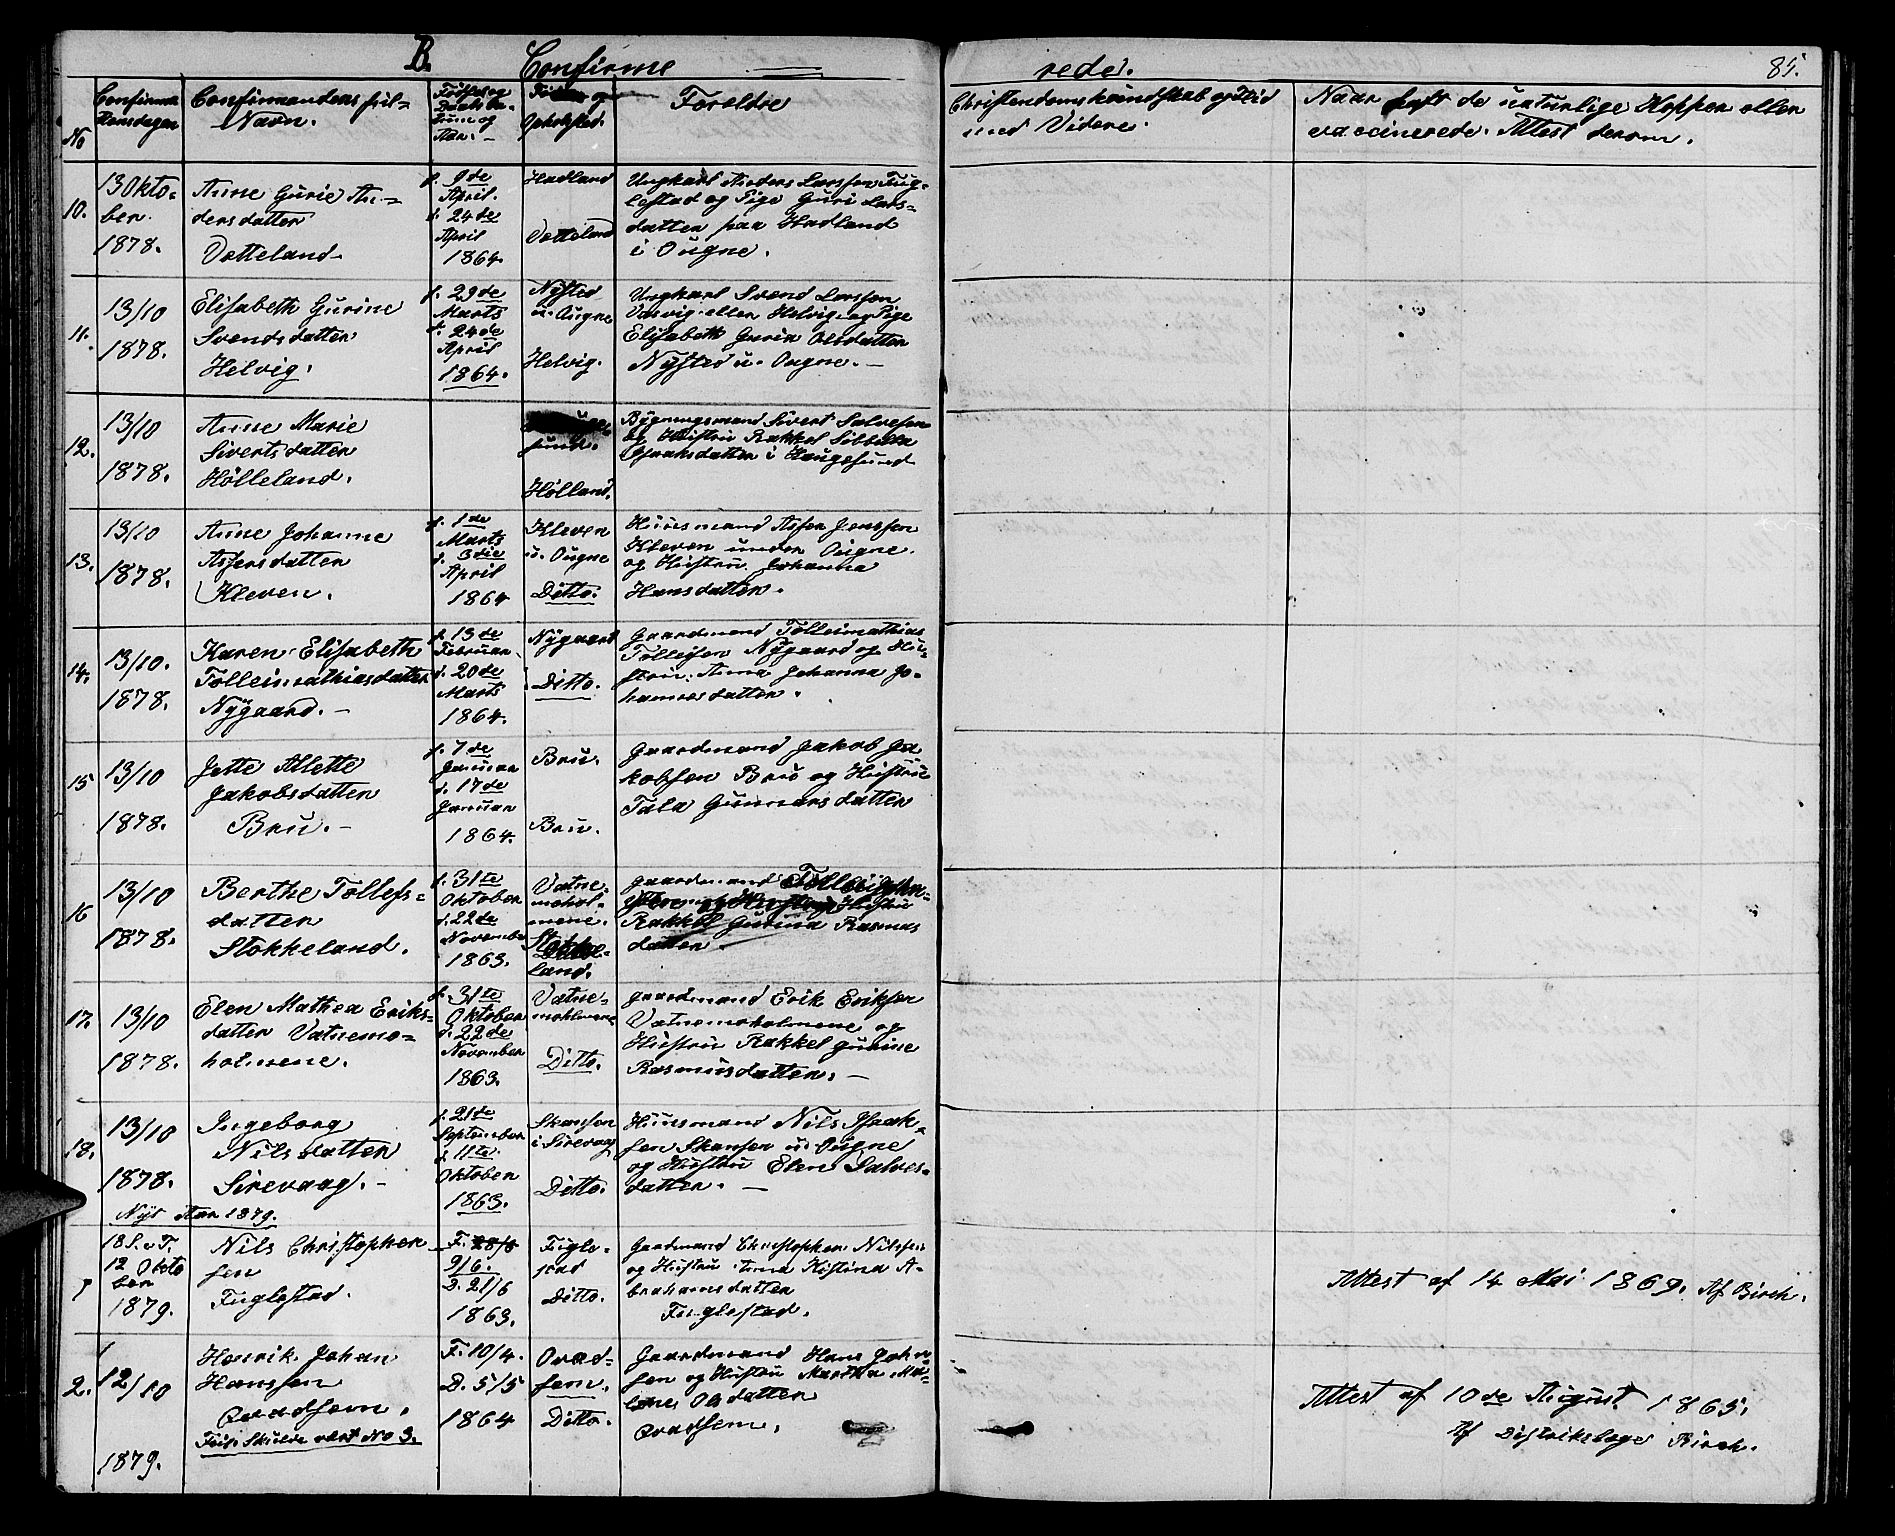 B. Confirme rede. 85.
No
Confirma tionsdagen
Confirmandens ful- Navn.
Fødsels og Daabs Da- tum og Aar. -
Føde og Opholdsted.
Foreldre
Christendomskundskab og Flid med Videre.
Naar haft de naturlige Kopper eller vaccinerede. Attest derom.
10.
13 Okto-
ber.
1878.
Anne Gurie An-
dersdatter
Vetteland.
f. 9de
April.
d. 24de
April
1864.
Hadland
Vetteland
Ungkarl Anders Larssen Fug-
lestad og Pige Guri Lars-
datter paa Hadland
i Ougne.
11.
13/10
1878.
Elisabeth Gurine
Svendsdatter
Helvig.
f. 29de
Marts
d. 24de
April
1864.
Nysted
u. Ougne
Helvig.
Ungkarl Svend Larssen
Valvig eller Helvig og Pige
Elisabeth Gurin Olsdatter
Nysted u. Ougne. -
12.
13/10
1878.
Anne Marie
Sivertsdatter
Hølleland.
sund.
Hølland.
Bygningsmand Sivert Salvesen
og Hustru Rakkel Sibbella
Isaaksdatter i Haugesund
13.
13/10
1878.
Anne Johanne
Assersdatter
Kleven.
f. 1de
Marts
d. 3die
April
1864
Kleven
u. Ougne
Ditto.
Huusmand Asser Jenssen
Kleven under Ougne.
og Hustru Johanna
Hansdatter.
14.
13/10.
1878.
Karen Elisabeth
Tolleimathiasdatter
Nygaard. -
f. 13de
Februar.
d. 20de
Marts
1864.
Nygaard
Ditto.
Gaardmand Tolleimathias
Tolleifsen Nygaard og Hu-
stru. Anna Johanna Jo-
hannesdatter.
15
13/10
1878.
Jette Allette
Jakobsdatter
Bru. -
f. 7de
Januar
d. 17de
Januar
1864.
Bru.
Bru.
Gaardmand Jakob Ja
kobsen Bru og Hustru
Tala Gunnarsdatter
16
13/10
1878.
Berthe Tollefs-
datter
Stokkeland.
f. 31te
Oktober
d. 22de
November
1863.
Vatne-
mohol-
mene.
Stokke-
land.
Gaardmand Tollei
Hustru
Rakkel Gurina Rasmus
datter
17.
13/10
1878.
Elen Mathea Eriks-
datter Vatnemo-
holmene.
f. 31te
Oktober
d. 22de
November
1863.
Vatne-
moholmene
Ditto.
Gaardmand Erik Eriksen
Vatnemoholmene og
Hustru Rakkel Gurine
Rasmusdatter. -
18.
13/10
1878.
Ingeborg
Nilsdatter
Sirevaag. -
f. 21de
September
d. 11te.
Oktober
1863.
Skansen
i Sirevaag
Ditto.
Huusmand Nils Isaak-
sen Skansen u. Ougne
og Hustru Elen Salves-
datter. -
Nyt Aar 1879.
1
18 S. e. T.
12 Okto
ber
1879.
Nils Christopher
sen
Fuglestad.
F. 28/5
9/6.
D. 21/6
1863.
Fugle-
stad
Ditto.
Gaardmand Christopher Nilssen
og Hustru Anna Kistina A-
brahamsdatter
Fuglestad.
Attest af 14 Mai 1869. Af Birch.
2.
12/10
1879.
Henrik Johan
Hanssen
Qvadsem.
Feil: Skulde vært No 3.
F. 10/4.
D. 5/5
1864
Qvad-
sem.
Ditto.
Gaardmand Hans John-
sen og Hustru Martha Ma-
lene Olsdatter
Qvadsem.
Attest af 10de August 1865.
Af Distriktslæge Birch.